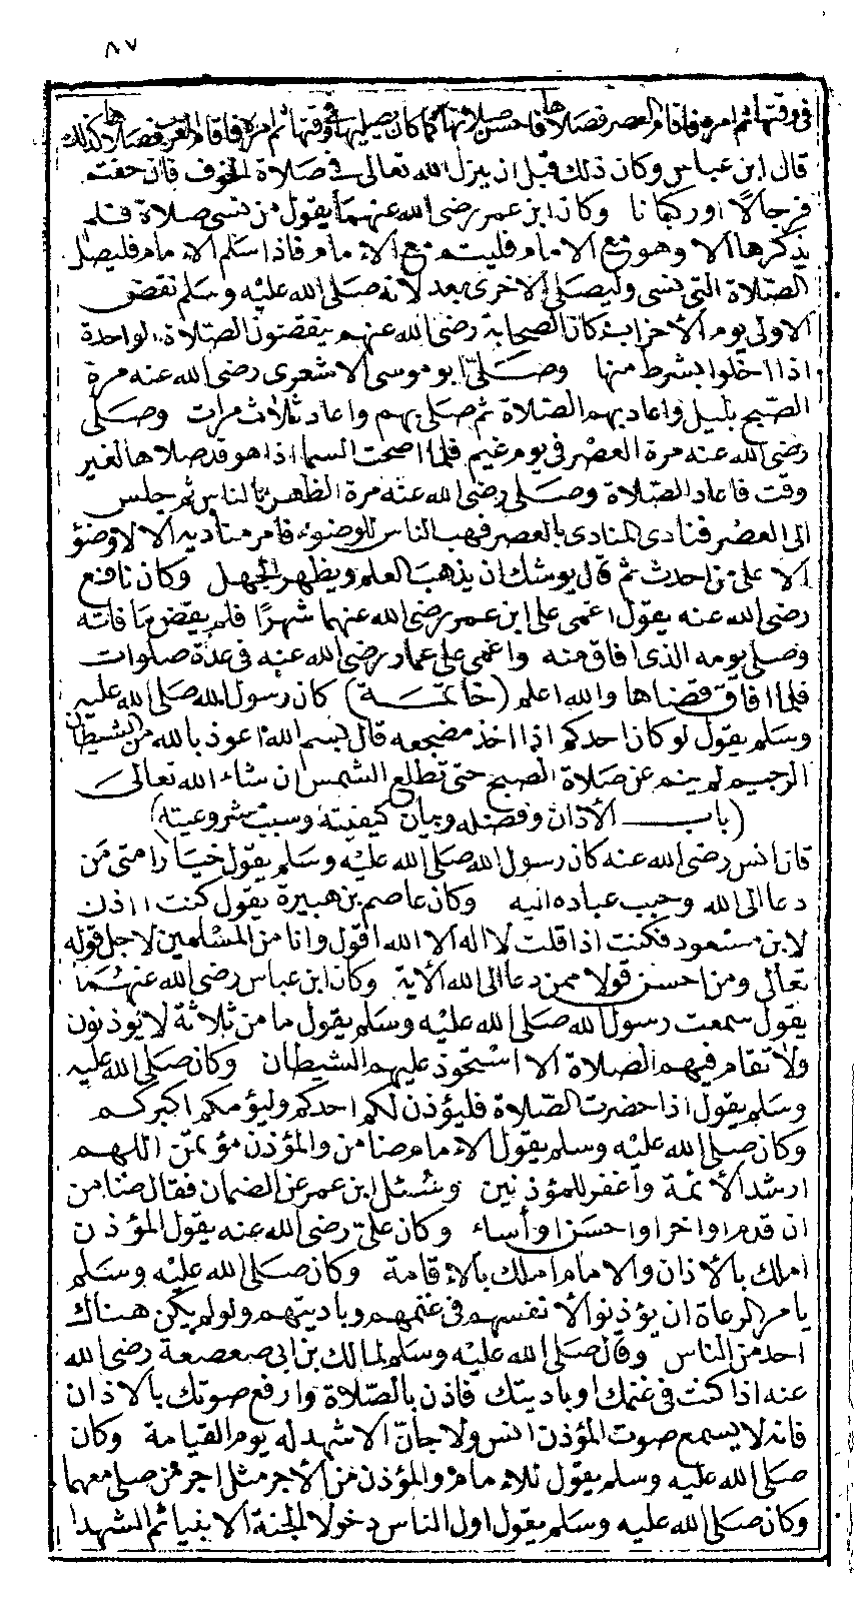 ٨٧
في وقتها ثم امره فاقام العصر فصلاها فاحسن صلاتها كما كان يصليها في وقتها ثم امره فاقام المغرب فصلاها كذلك
قال ابن عباس وكان ذلك قبل ان ينزل الله تعالى في صلاة الخوف فان خفتم
فرجالًا اوركبانا وكان ابن عمر رضي الله عنهما يقول من نسى صلاة فلم
يذكرها الا وهو مع الامام فليتم مع الامام فاذا سلم الامام فليصل
الصلاة التي نسى وليصل الاخرى بعد لانه صلى الله عليه وسلم نقض
الاولى يوم الأحزاب وكان الصحابة رضي الله عنهم ينقضون الصلاة الواحدة
اذا اخلوا بشرط منها وصلى ابو موسى الاشعرى رضي الله عنه مرة
الصبح بليل واعاد بهم الصلاة ثم صلى بهم واعاد ثلاث مرات وصلى
رضي الله عنه مرة العصر في يوم غيم فلما اصحت السما اذا هو قد صلاها لغير
وقت فاعاد الصلاة وصلى رضي الله عنه مرة الظهر بالناس ثم جلس
الى العصر فنادى المنادى بالعصر فهب الناس للوضوء فامر مناديه الا لا وضؤ
الا على من احدث ثم قال يوشك ان يذهب العلم ويظهر الجهل وكان نافع
رضي الله عنه يقول اغمى على ابن عمر رضي الله عنهما شهرًا فلم يقض ما فاته
وصلى يومه الذى افاق منه واغمى على عمار رضي الله عنه في عدة صلوات
فلما افاق قضاها والله اعلم (خاتمة) كان رسول الله صلى الله عليه
وسلم يقول لو كان احدكم اذا اخذ مضجعه قال بسم الله اعوذ بالله من الشيطان
الرجيم لم ينم عن صلاة الصبح حتى تطلع الشمس ان شاء الله تعالى
(باب الأذان وفضله وبيان كيفيته وسبب مشروعيته)
قال انس رضي الله عنه كان رسول الله صلى الله عليه وسلم يقول خيار امتى من
دعا الى الله وحبب عباده اليه وكان عاصم بن هبيرة يقول كنت ااذن
لابن مسعود فكنت اذا قلت لا اله الا الله اقول وانا من المسلمين لاجل قوله
تعالى ومن احسن قولا ممن دعا الى الله الأية وكان ابن عباس رضي الله عنهما
يقول سمعت رسول الله صلى الله عليه وسلم يقول ما من ثلاثة لا يوذنون
ولا تقام فيهم الصلاة الا استحوذ عليهم الشيطان وكان صلى الله عليه
وسلم يقول اذا حضرت الصلاة فليؤذن لكم احدكم وليؤمكم اكبركم
وكان صلى الله عليه وسلم يقول الامام ضامن والمؤذن مؤتمن اللهم
ارشد الأئمة واغفر للمؤذنين وسُئل ابن عمر عن الضمان فقال ضامن
ان قدم او اخر او احسن او أساء وكان علي رضي الله عنه يقول المؤذن
املك بالأذان والامام املك بالاقامة وكان صلى الله عليه وسلم
يامر الرعاة ان يؤذنوا لأنفسهم في غنمهم وباديتهم ولو لم يكن هناك
احد من الناس وقال صلى الله عليه وسلم لمالك بن ابى صعصعة رضي الله
عنه اذا كنت في غنمك او باديتك فاذن بالصلاة وارفع صوتك بالاذان
فانه لا يسمع صوت المؤذن انس ولا جان الا شهد له يوم القيامة وكان
صلى الله عليه وسلم يقول للامام والمؤذن من الأجر مثل اجر من صلى معهما
وكان صلى الله عليه وسلم يقول اول الناس دخولا الجنة الانبيا ثم الشهدا